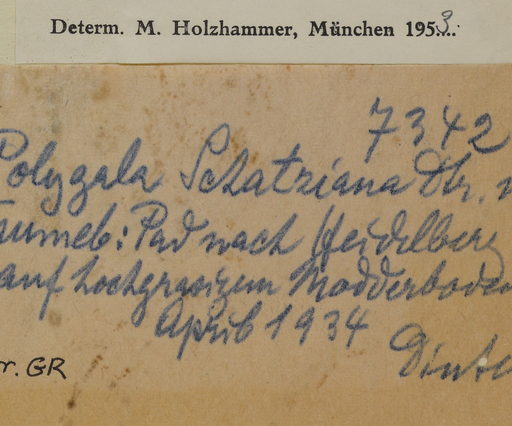 Determ. M. Holzhammer, München 1953.
7342
Polygala Schatziana Dtr. n
Tsumeb: Pad nach Heidelberg
auf hochgrasigem Modderboden
April 1934
Dinte
r. GR